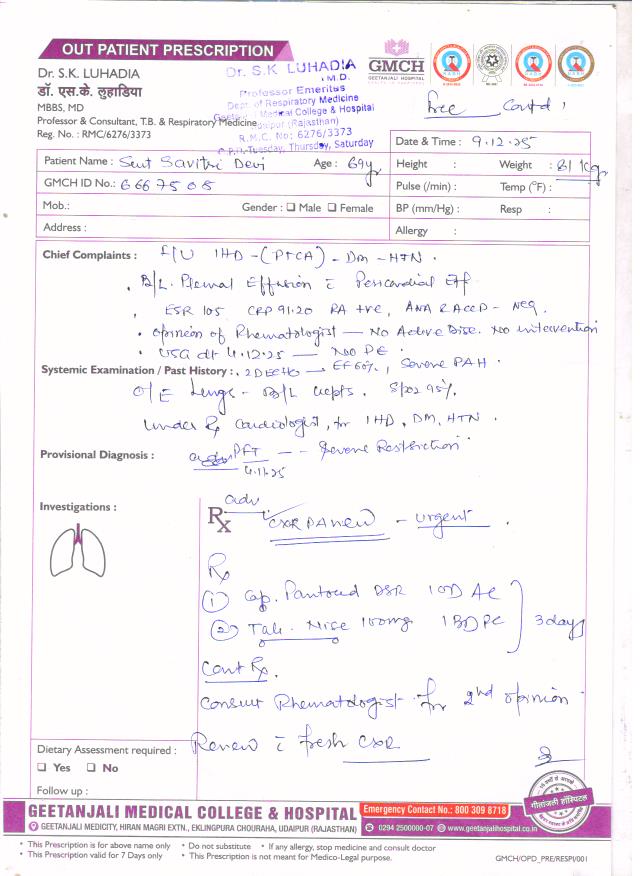 OUT PATIENT PRESCRIPTION
Dr. S.K. LUHADIA
डॉ. एस.के. लुहाड़िया
MBBS, MD
Professor & Consultant, T.B. & Respiratory Medicine
Reg. No. : RMC/6276/3373
Dr. S.K LUHADIA
M.D.
Professor Emeritus
Dept. of Respiratory Medicine
Geetanjali Medical College & Hospital
Udaipur (Rajasthan)
R.M.C. No: 6276/3373
O.P.D.-Tuesday, Thursday, Saturday
GMCH
GEETANJALI HOSPITAL
Free Cont'd
Date & Time : 9.12.25
Patient Name : Smt Savitri Devi Age : 69y
Height : Weight : 61 Kg
GMCH ID No.: 6667508
Pulse (/min) : Temp (°F) :
Mob.: Gender : ☐ Male ☐ Female
BP (mm/Hg) : Resp :
Address :
Allergy :
Chief Complaints : F/U IHD-(PTCA) - DM - HTN
. B/L. Pleural Effusion c Pericardial Eff
, ESR 105 CRP 91.20 RA +ve, ANA & ACCP - Neg.
• Opinion of Rhematologist — No Active Dise. No intervention
• USG dt 4.12.25 — No PE .
Systemic Examination / Past History : . 2DECHO → EF 60%, Severe PAH .
O/E Lungs - B/L crepts. SpO2 95%.
Under Rx Cardiologist, for IHD, DM, HTN .
Provisional Diagnosis : PFT - - Severe Restriction
4.11.25
Investigations :
adv
Rx CXR PA new - urgent .
Rx
① Cap. Pantocid DSR 1OD AC
② Tab. Nise 100mg 1BD PC
3 days
Cont Rx.
Consult Rhematologist for 2nd opinion
Review c fresh CXR
Dietary Assessment required :
☐ Yes ☐ No
Follow up :
गीतांजली हॉस्पिटल
GEETANJALI MEDICAL COLLEGE & HOSPITAL
Emergency Contact No.: 800 309 8718
GEETANJALI MEDICITY, HIRAN MAGRI EXTN., EKLINGPURA CHOURAHA, UDAIPUR (RAJASTHAN)
0294 2500000-07 www.geetanjalihospital.co.in
* This Prescription is for above name only * Do not substitute * If any allergy, stop medicine and consult doctor
* This Prescription valid for 7 Days only * This Prescription is not meant for Medico-Legal purpose.
GMCH/OPD_PRE/RESPI/001